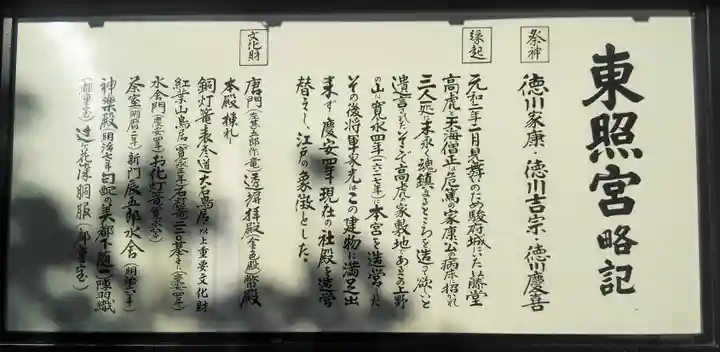 東照宮略記
祭神
徳川家康・徳川吉宗・徳川慶喜
縁起
元和二年二月見舞のため駿府城にいた藤堂
高虎と天海僧正は危篤の家康公の病床に招かれ
三人一処に末永く魂鎮まるところを造って欲いと
遺言された そこで高虎の家敷地であるこの上野
の山に寛永四年(一六二七年)に本宮を造営した
その後将軍家光はこの建物に満足出
来ず 慶安四年現在の社殿を造営
替えし、江戸の象徴とした。
文化財
唐門(左甚五郎作竜)透塀 拝殿(金色殿)幣殿
本殿
銅灯籠 表参道 大石鳥居 以上重要文化財
紅葉山鳥居
水舎門(慶安四年)お化灯籠
茶室(明暦二年)新門辰五郎 水舎(明治六年)
神楽殿(明治七年)
(都重宝)辻が花染胴服(都重宝)